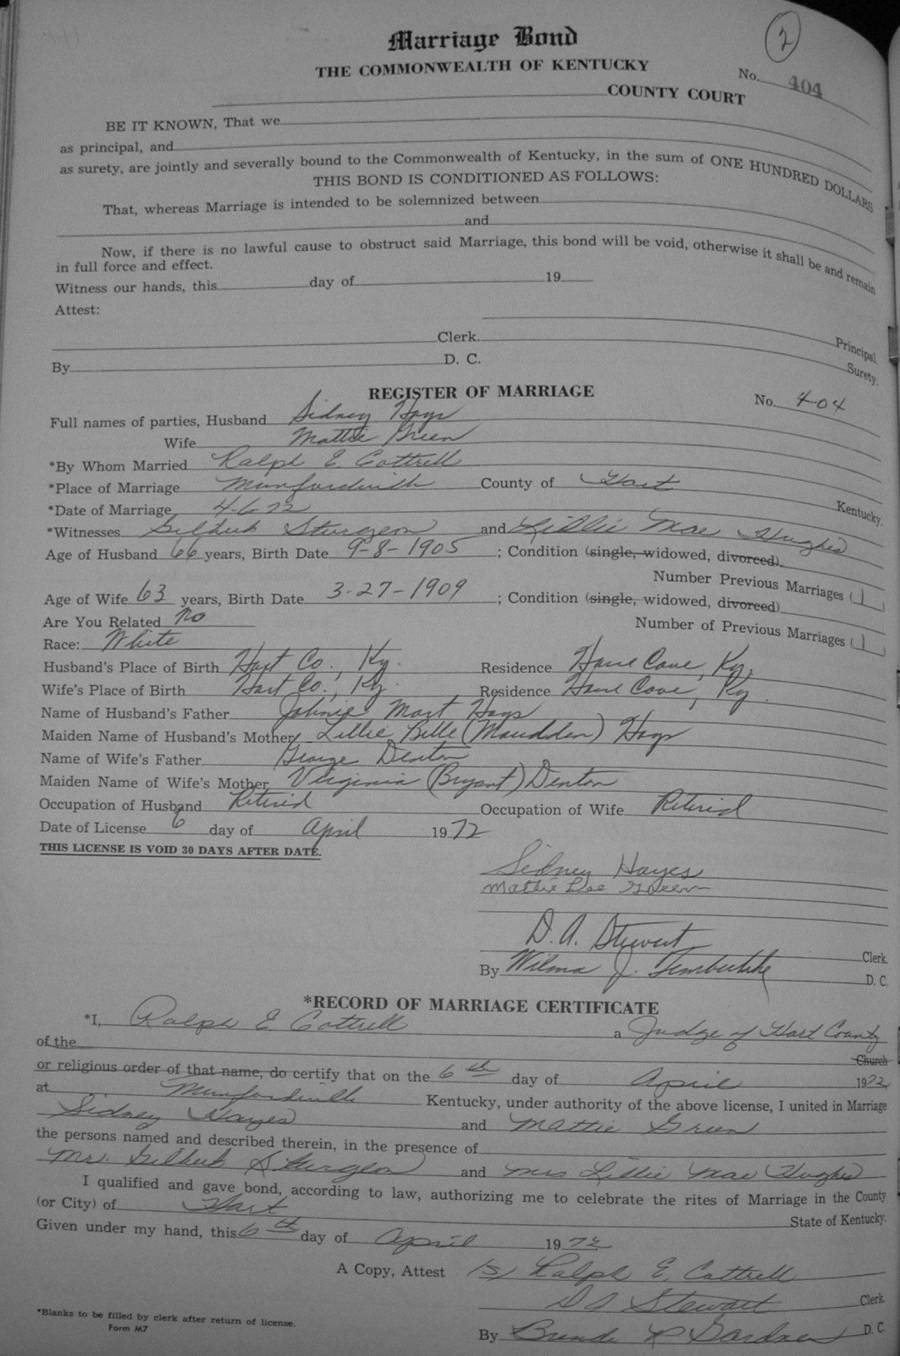 2
Marriage Bond
THE COMMONWEALTH OF KENTUCKY
No. 404
COUNTY COURT
BE IT KNOWN, That we
as principal, and
as surety, are jointly and severally bound to the Commonwealth of Kentucky, in the sum of ONE HUNDRED DOLLARS
THIS BOND IS CONDITIONED AS FOLLOWS:
That, whereas Marriage is intended to be solemnized between
and
Now, if there is no lawful cause to obstruct said Marriage, this bond will be void, otherwise it shall be and remain
in full force and effect.
Witness our hands, this day of 19
Attest:
Clerk. Principal.
By D. C. Surety.
REGISTER OF MARRIAGE
No. 404
Full names of parties, Husband Sidney Hays
Wife Mattie Green
*By Whom Married Ralph E. Cottrell
*Place of Marriage Munfordville County of Hart Kentucky.
*Date of Marriage 4-6-72
*Witnesses Sturgeon and Lillie Mae Hughes
Age of Husband 66 years, Birth Date 9-8-1905 ; Condition (single, widowed, divorced).
Number Previous Marriages (1)
Age of Wife 63 years, Birth Date 3-27-1909 ; Condition (single, widowed, divorced)
Number of Previous Marriages (1)
Are You Related No
Race: White
Husband's Place of Birth Hart Co., Ky. Residence Horse Cave, Ky.
Wife's Place of Birth Hart Co., Ky. Residence Horse Cave, Ky.
Name of Husband's Father Johnie Mart Hays
Maiden Name of Husband's Mother Lillie Belle (Maudden) Hays
Name of Wife's Father George Denton
Maiden Name of Wife's Mother Virginia (Bryant) Denton
Occupation of Husband Retired Occupation of Wife Retired
Date of License 6 day of April 1972
THIS LICENSE IS VOID 30 DAYS AFTER DATE.
Sidney Hayes
Mattie Lee Green
D. A. Stewart Clerk.
By Wilma J. Timberlake D. C.
*RECORD OF MARRIAGE CERTIFICATE
*I, Ralph E. Cottrell a Judge of Hart County
of the Church
or religious order of that name, do certify that on the 6th day of April 1972
at Munfordville Kentucky, under authority of the above license, I united in Marriage
Sidney Hayes and Mattie Green
the persons named and described therein, in the presence of
Mr. Sturgeon and Mrs Lillie Mae Hughes
I qualified and gave bond, according to law, authorizing me to celebrate the rites of Marriage in the County
(or City) of Hart State of Kentucky.
Given under my hand, this 6th day of April 1972
A Copy, Attest /s/ Ralph E. Cottrell
D A Stewart Clerk
By Brenda Gardner D. C.
*Blanks to be filled by clerk after return of license.
Form M7